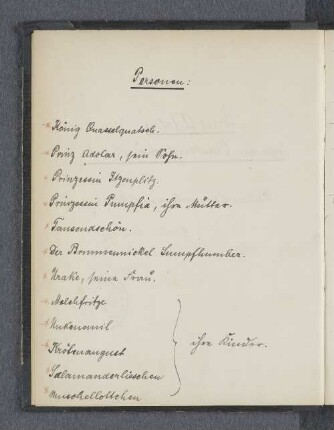 Personen:
König Quasselquatsch.
Prinz Adolar, sein Sohn.
Prinzessin Itzenplitz.
Prinzessin Pumpfia, ihre Mutter.
Tausendschön.
Der Brummnickel Sumpfhumber.
Urake, seine Frau.
Molchfritze
Unkenemil
Krötenaugust
Salamanderlieschen
Muschellottchen
ihre Kinder.